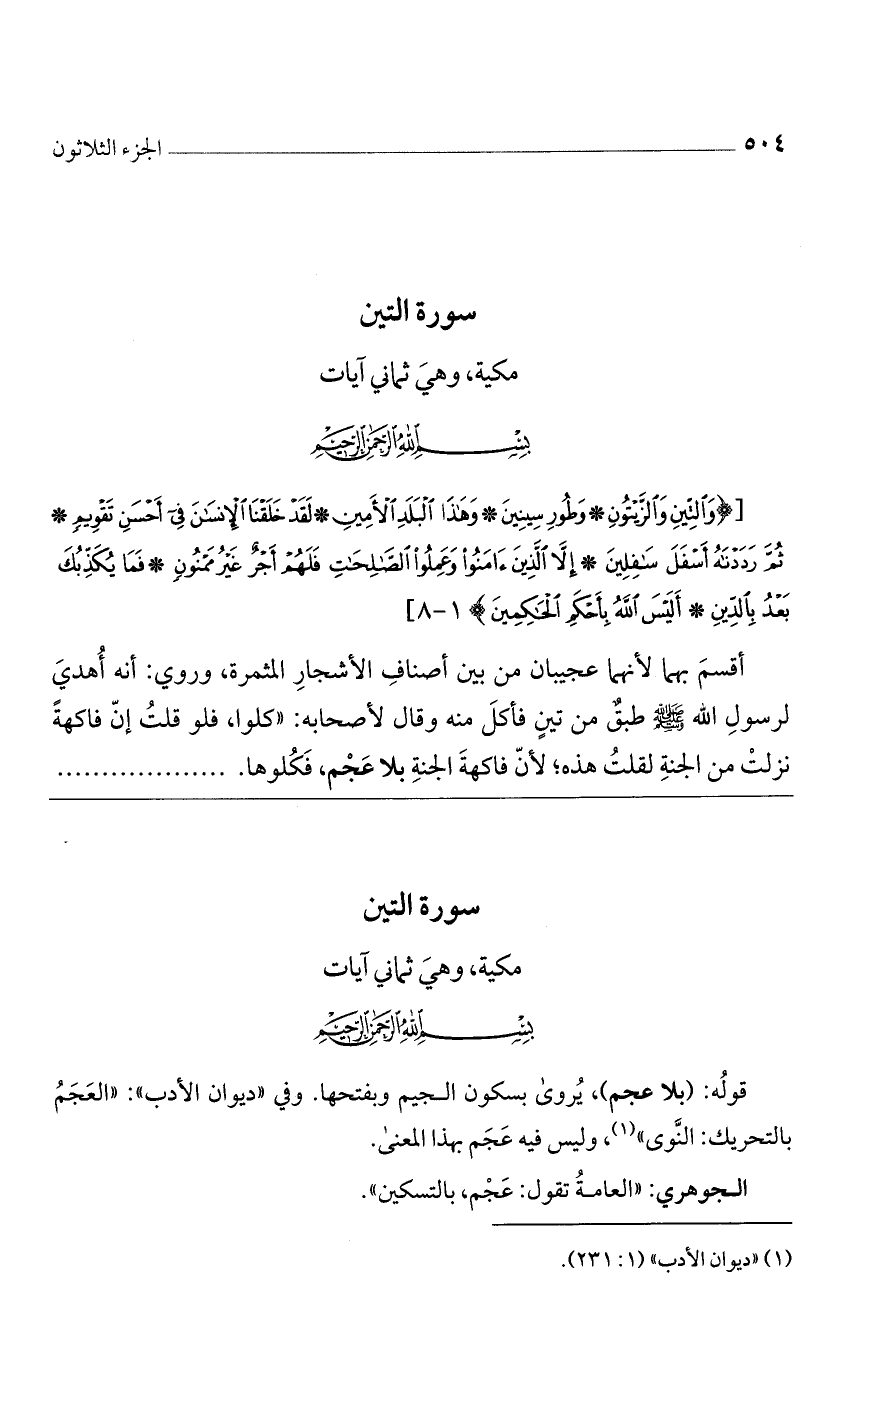 ٥٠٤ الجزء الثلاثون
سورة التين
مكية، وهيَ ثماني آيات
بِسْمِ ٱللَّهِ ٱلرَّحْمَٰنِ ٱلرَّحِيمِ
[﴿وَٱلتِّينِ وَٱلزَّيْتُونِ * وَطُورِ سِينِينَ * وَهَٰذَا ٱلْبَلَدِ ٱلْأَمِينِ * لَقَدْ خَلَقْنَا ٱلْإِنسَٰنَ فِىٓ أَحْسَنِ تَقْوِيمٍ *
ثُمَّ رَدَدْنَٰهُ أَسْفَلَ سَٰفِلِينَ * إِلَّا ٱلَّذِينَ ءَامَنُوا۟ وَعَمِلُوا۟ ٱلصَّٰلِحَٰتِ فَلَهُمْ أَجْرٌ غَيْرُ مَمْنُونٍ * فَمَا يُكَذِّبُكَ
بَعْدُ بِٱلدِّينِ * أَلَيْسَ ٱللَّهُ بِأَحْكَمِ ٱلْحَٰكِمِينَ﴾ ١-٨]
أقسمَ بهما لأنهما عجيبان من بين أصنافِ الأشجارِ المثمرة، وروي: أنه أُهديَ
لرسولِ الله ﷺ طبقٌ من تينٍ فأكلَ منه وقال لأصحابه: «كلوا، فلو قلتُ إنّ فاكهةً
نزلتْ من الجنةِ لقلتُ هذه؛ لأنّ فاكهةَ الجنةِ بلا عَجْم، فَكُلوها. ...................
سورة التين
مكية، وهيَ ثماني آيات
بِسْمِ ٱللَّهِ ٱلرَّحْمَٰنِ ٱلرَّحِيمِ
قولُه: (بلا عجم)، يُروىٰ بسكون الـجيم وبفتحها. وفي «ديوان الأدب»: «العَجَمُ
بالتحريك: النَّوى»(١)، وليس فيه عَجَم بهذا المعنىٰ.
الـجوهري: «العامـةُ تقول: عَجْم، بالتسكين».
(١) «ديوان الأدب» (١: ٢٣١).